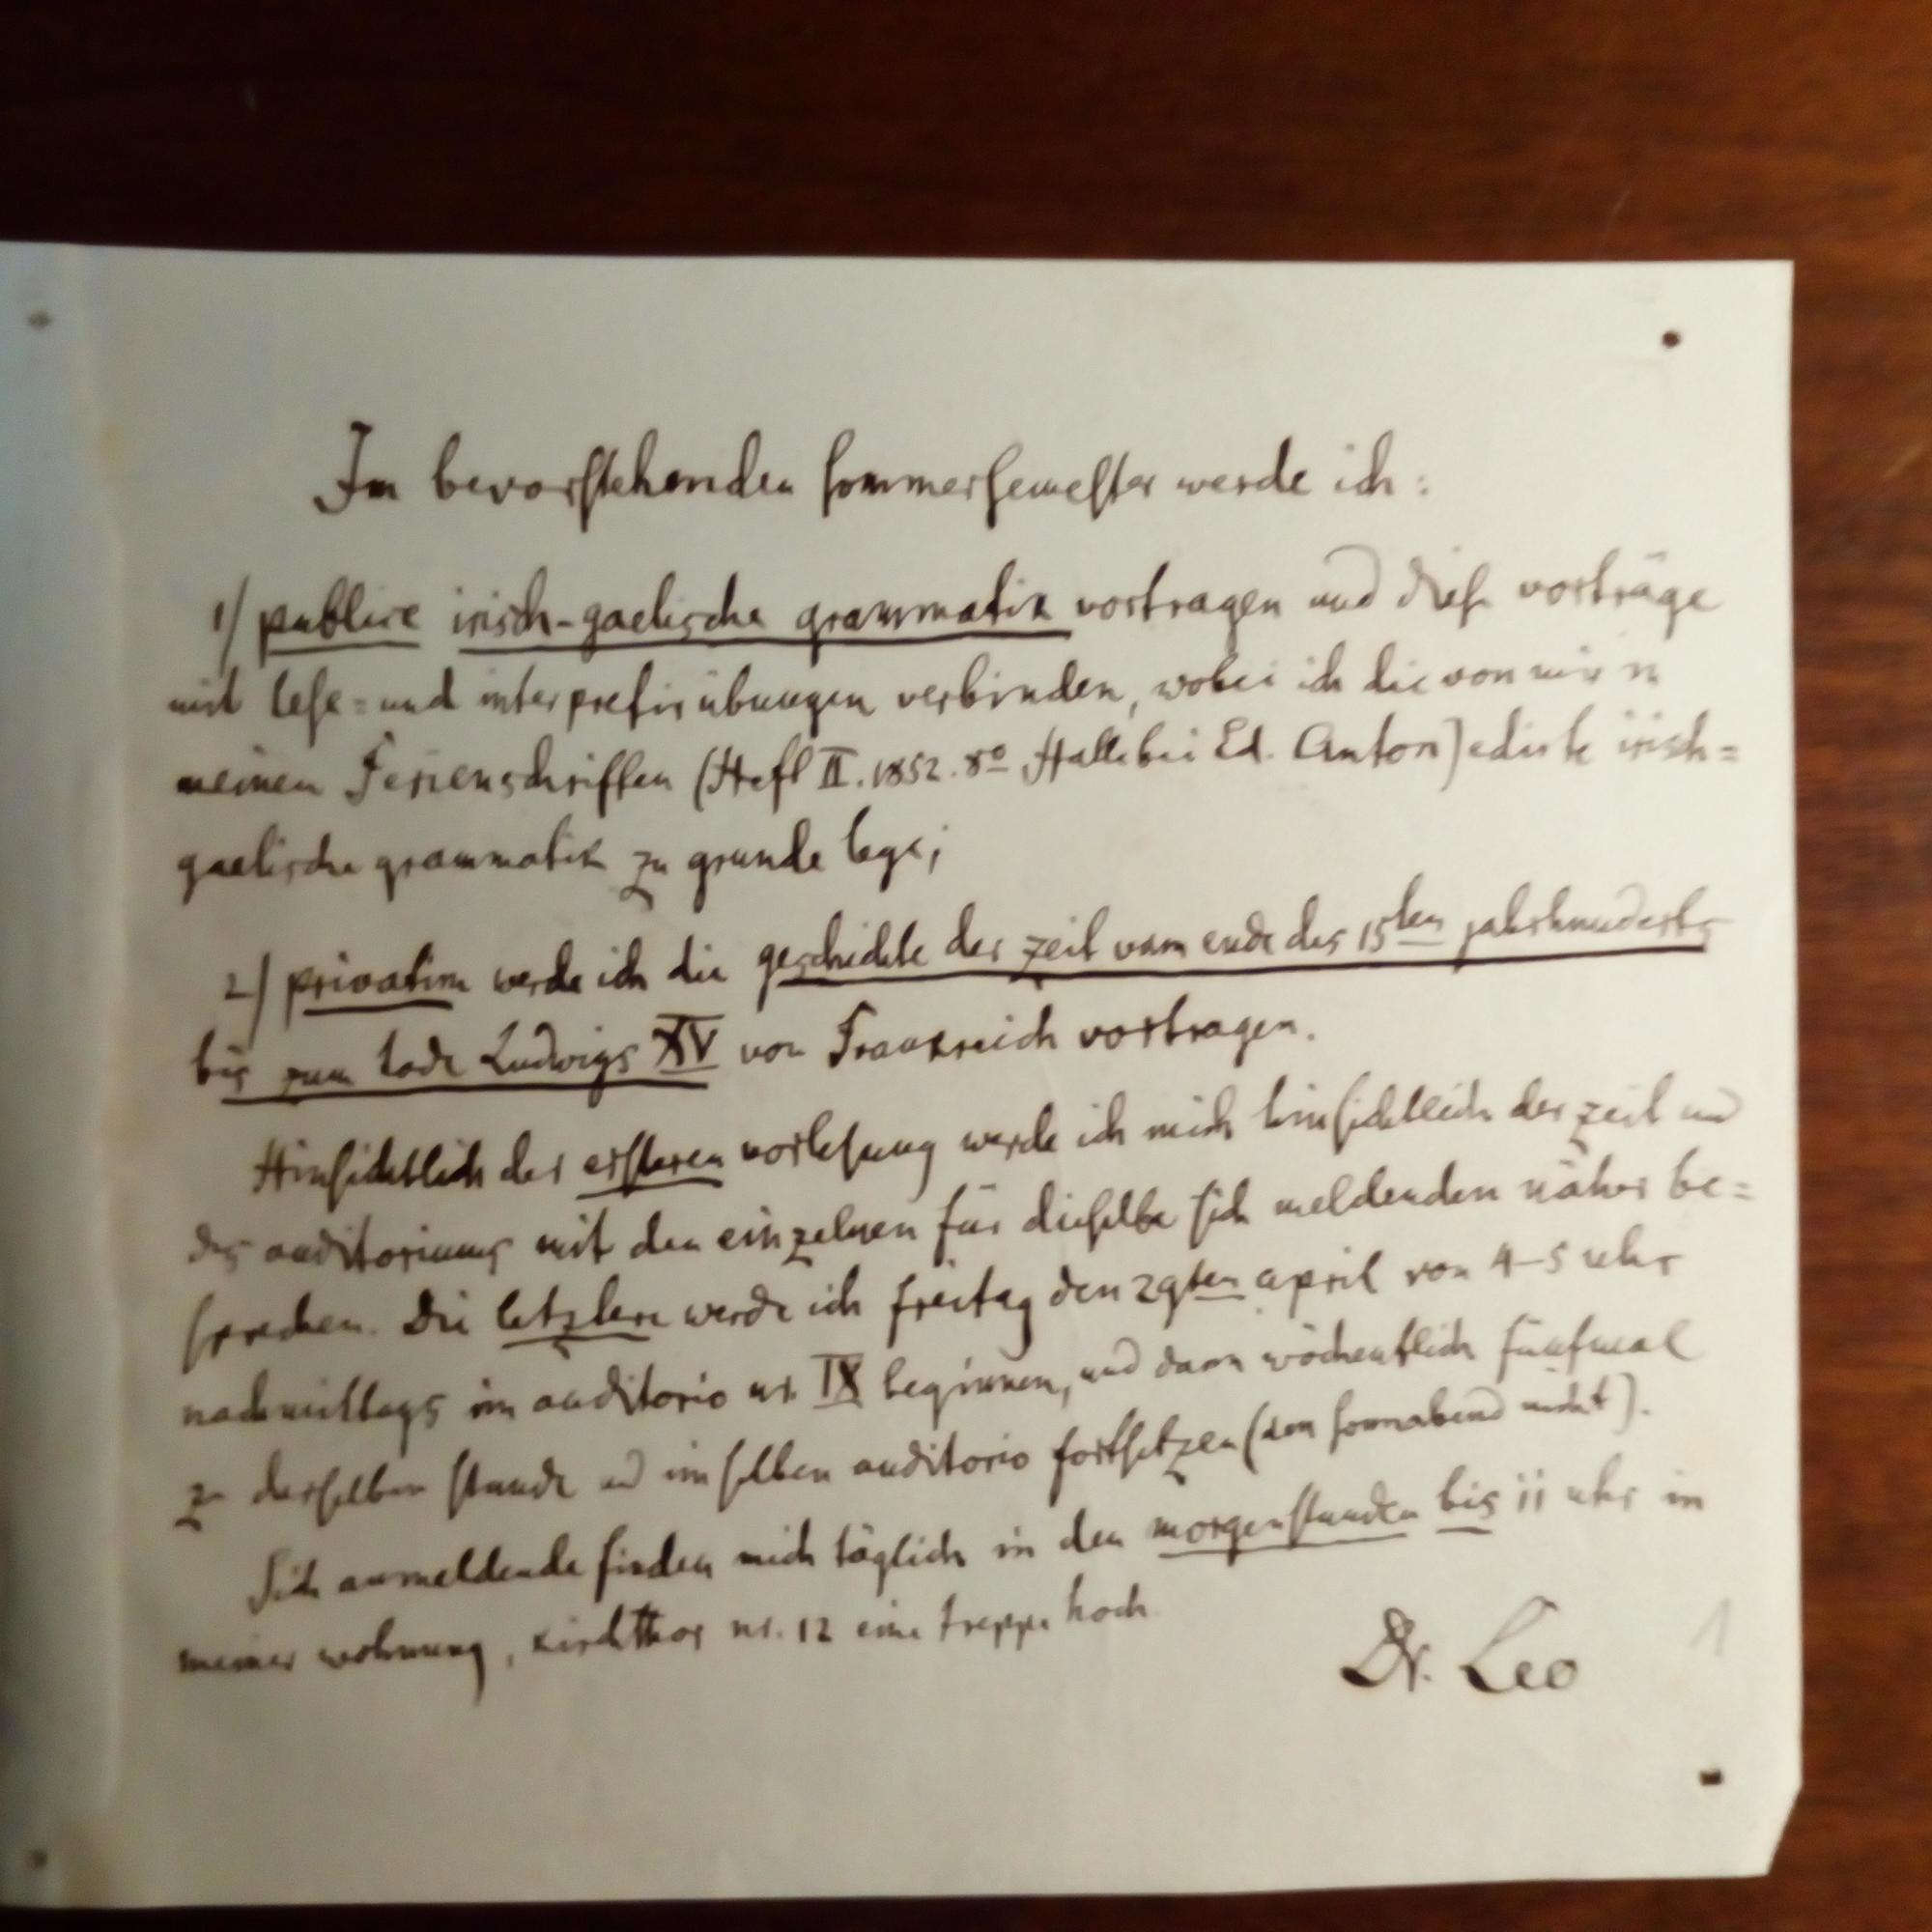 Im bevorstehenden sommersemester werde ich:
1/ publice irisch-gaelische grammatik vortragen und diese vorträge
mit lese= und interpretirübungen verbinden, wobei ich die von mir in
meinen Ferienschriften (Heft II. 1852. 8º Halle bei Ed. Anton) edirte irisch=
gaelische grammatik zu grunde lege;
2/ privatim werde ich die geschichte der zeit vom ende des 15ten jahrhunderts
bis zum tode Ludwigs XV von Frankreich vortragen.
Hinsichtlich der ersteren vorlesung werde ich mich hinsichtlich der zeit und
des auditoriums mit den einzelnen für dieselbe sich meldenden näher be=
sprechen. Die letztere werde ich freitag den 29ten april von 4-5 uhr
nachmittags im auditorio nr. IX beginnen, und dann wöchentlich fünfmal
zu derselben stunde und im selben auditorio fortsetzen (den sonnabend nicht).
Sich anmeldende finden mich täglich in den morgenstunden bis 11 uhr in
meiner wohnung, kirchthor nr. 12 eine treppe hoch
Dr. Leo
1